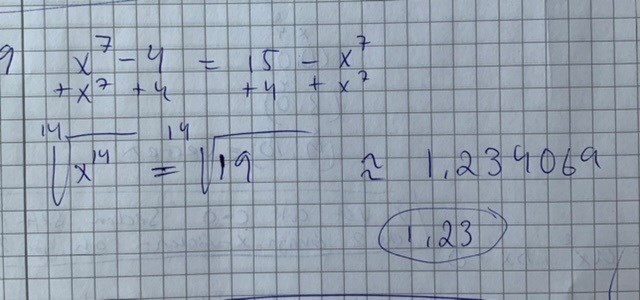 9 x⁷ - 4 = 15 - x⁷
+x⁷ +4 +4 + x⁷
¹⁴√x¹⁴ = ¹⁴√19 ≈ 1,234069
1,23